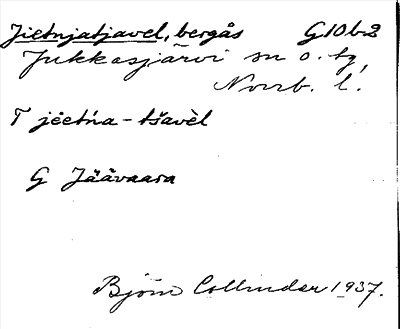 Jietnjatjavel, bergås G10b2
Jukkasjärvi sn o. tg,
Norrb. l.
T jĕet́ńa-tšavèl
G Jäävaara
Björn Collinder 1937.